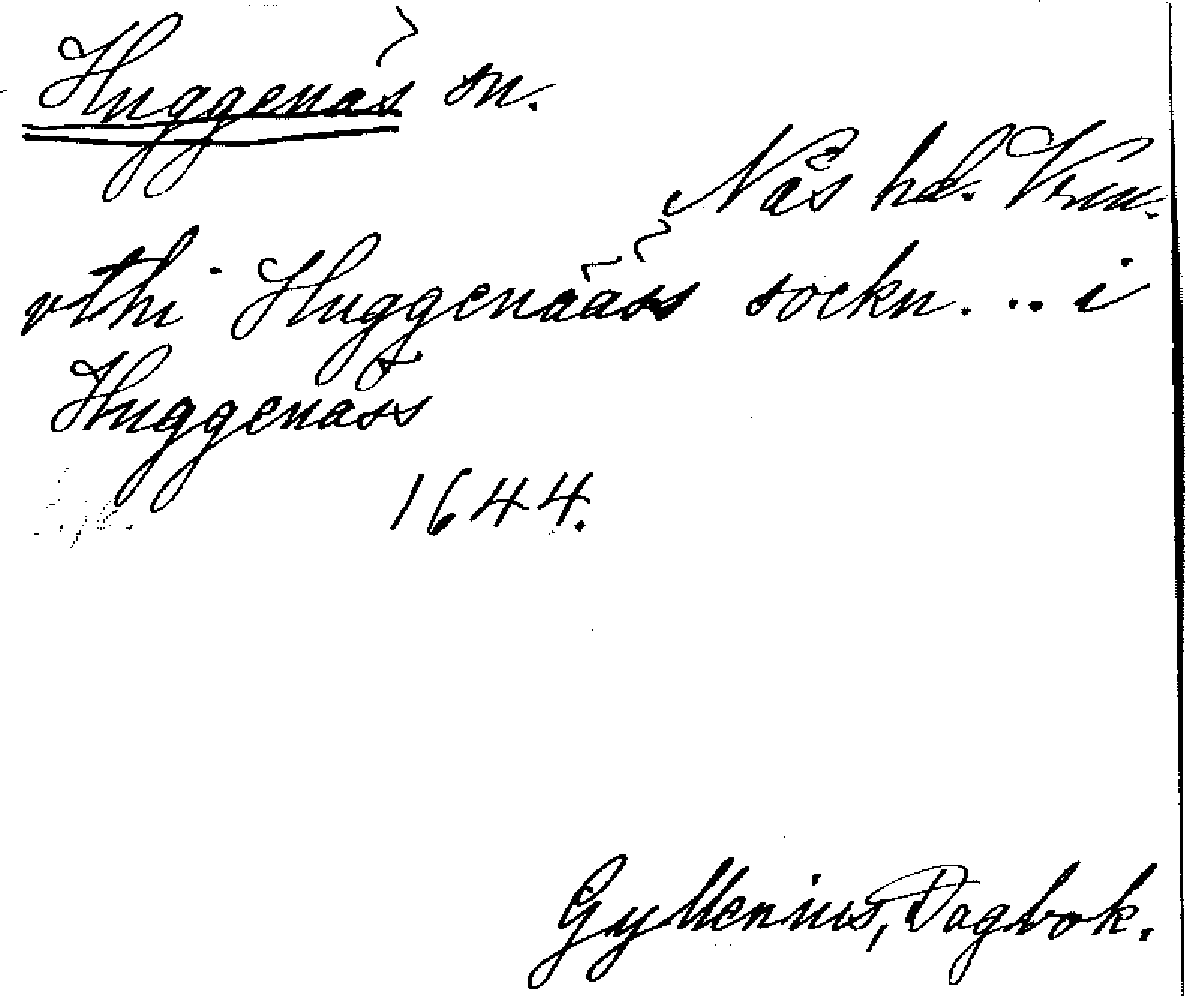 Huggenäs sn.
Näs hd. Vrm.
vthi Huggenääss sockn. ... i
Huggenäss
1644.
Gyllenius, Dagbok.